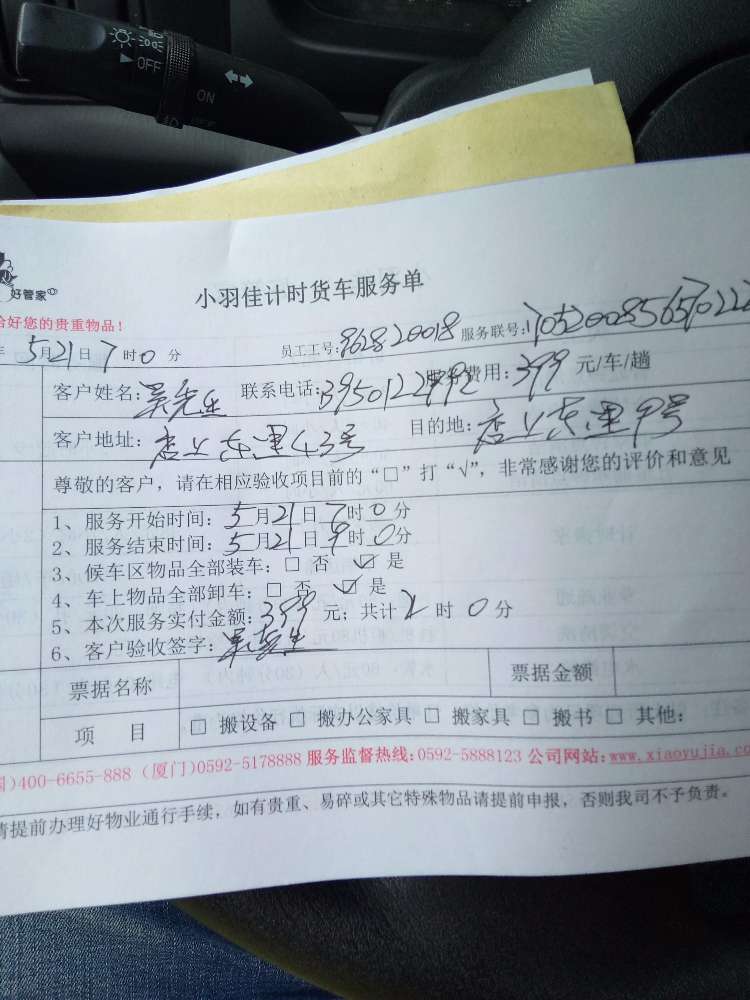 OFF
ON
好管家
小羽佳计时货车服务单
好您的贵重物品!
5月21日7时0分 员工工号:862820018 服务联号:
客户姓名:吴先生 联系电话: 费用:399 元/车/趟
客户地址:店上东里43号 目的地:店上东里9号
尊敬的客户,请在相应验收项目前的“□”打“√”,非常感谢您的评价和意见
1、服务开始时间:5月21日7时0分
2、服务结束时间:5月21日9时0分
3、候车区物品全部装车:□ 否 ☑ 是
4、车上物品全部卸车:□ 否 ☑ 是
5、本次服务实付金额:399 元;共计2 时 0分
6、客户验收签字:吴先生
票据名称 票据金额
项 目 □ 搬设备 □ 搬办公家具 □ 搬家具 □ 搬书 □ 其他:
)400-6655-888 (厦门)0592-5178888 服务监督热线:0592-5888123 公司网站:www.xiaoyujia.co
请提前办理好物业通行手续,如有贵重、易碎或其它特殊物品请提前申报,否则我司不予负责。